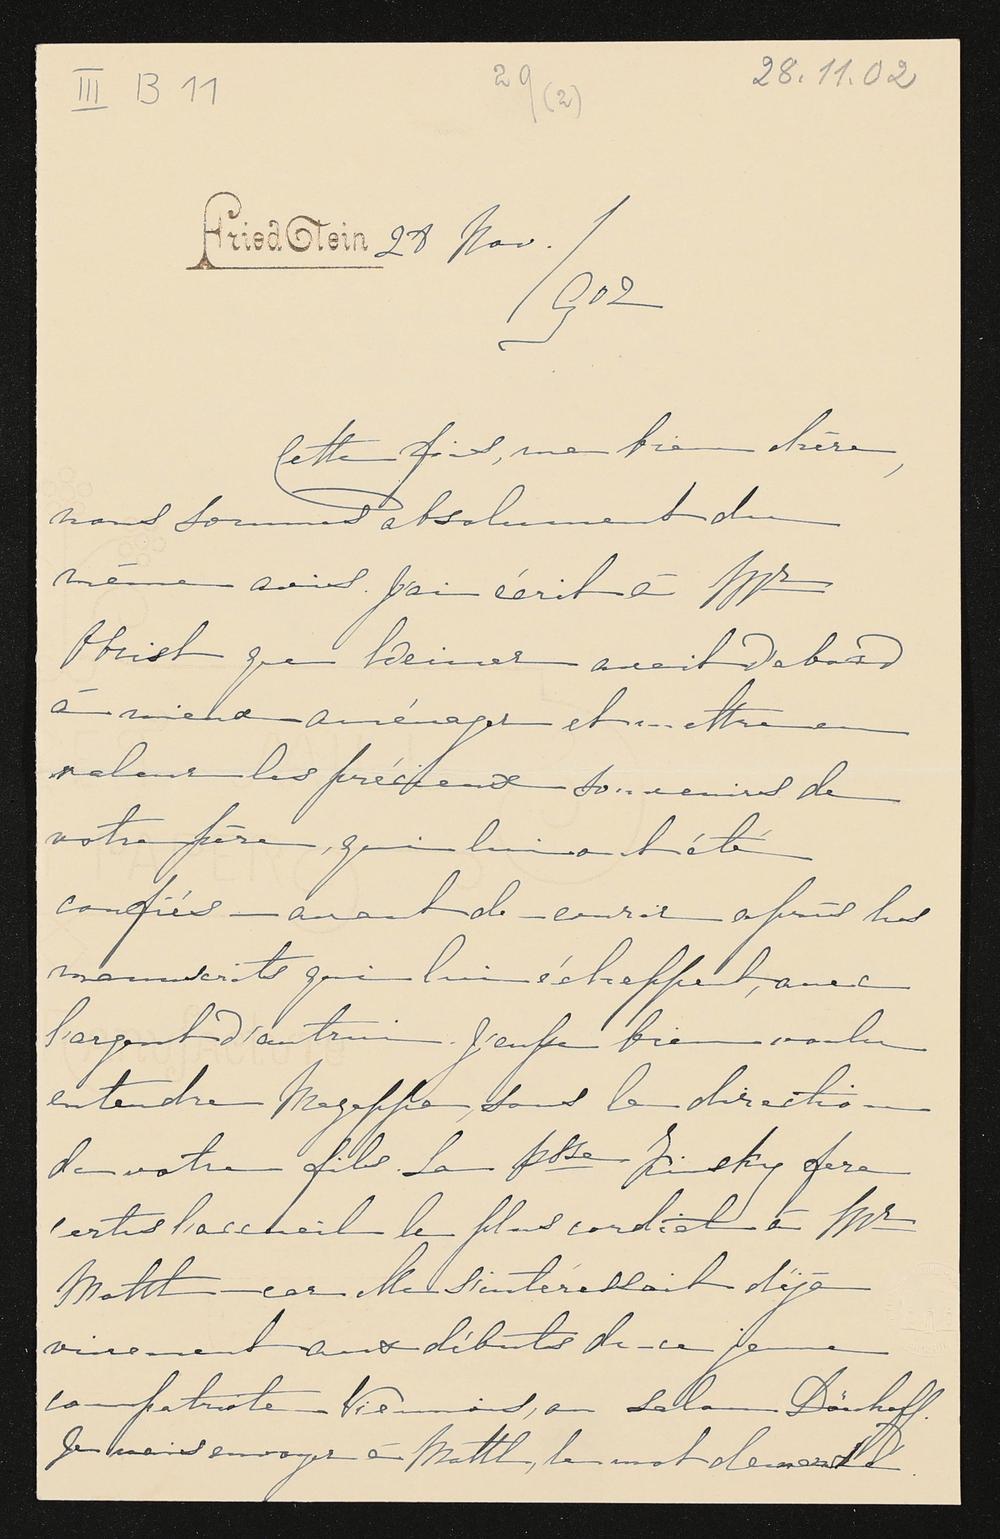 III B 11
29 (2)
28.11.02
FriedStein 28 Nov.
/902
Cette fois, ma bien chère,
nous sommes absolument du
même avis. J'ai écrit à Mr
Obrist que Weimar avait d'abord
à mieux aménager et mettre en
valeur les précieux souvenirs de
votre père, qui lui ont été
confiés – avant de courir après les
manuscrits qui lui échappent, avec
l'argent d'autrui. J'eusse bien voulu
entendre Mazeppa, sous la direction
de votre fils. La psse Kinsky fera
certes l'accueil le plus cordial à Mr
Mottl – car elle s'intéressait déjà
vivement aux débuts de ce jeune
compatriote Viennois, au salon Dönhoff.
Je vais envoyer à Mottl, le mot demandé.